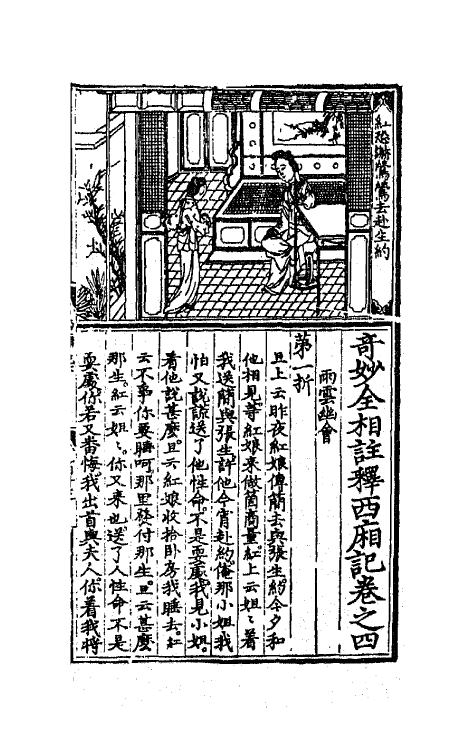 紅恐懶鶯鶯去赴生約
奇妙全相註釋西廂記卷之四
雨雲幽會
第一折
旦上云昨夜紅娘傳簡去與張生約今夕和
他相見等紅娘来做箇商量紅上云姐〻着
我送簡與張生許他今宵赴約俺那小姐我
怕又說謊送了他性命不是耍處我見小姐
看他說甚麽旦云紅娘收拾卧房我睡去紅
云不爭你要睡呵那里發付那生旦云甚麽
那生紅云姐〻你又来也送了人性命不是
耍處你若又番悔我出首與夫人你着我將